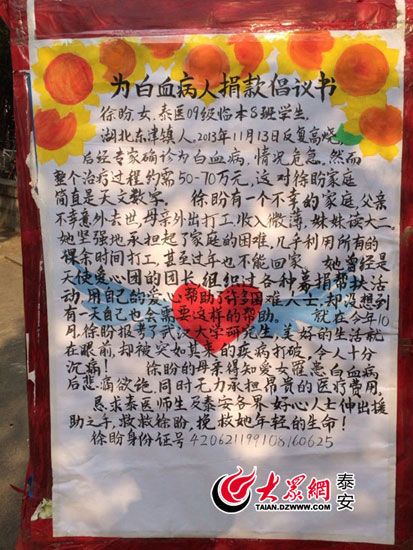 为白血病人捐款倡议书
徐盼,女,泰医09级临本8班学生,
湖北东津镇人,2013年11月13日反复高烧,
后经专家确诊为白血病,情况危急,然而
整个治疗过程约需50-70万元,这对徐盼家庭
简直是天文数字。 徐盼有一个不幸的家庭,父亲
不幸意外去世,母亲外出打工,收入微薄,妹妹读大二。
她坚强地承担起了家庭的困难,几乎利用所有的
课余时间打工,甚至过年也不能回家。 她曾经是
天使爱心团的团长,组织过各种募捐帮扶活
动,用自己的爱心帮助了许多困难人士,却没想到
有一天自己也会需要这样的帮助。 就在今年10
月,徐盼报考了武汉大学研究生,美好的生活就
在眼前,却被突如其来的疾病打破,令人十分
沉痛! 徐盼的母亲得知爱女罹患白血病
后悲痛欲绝,同时无力承担昂贵的医疗费用,
恳求泰医师生及泰安各界好心人士伸出援
助之手,救救徐盼,挽救她年轻的生命!
徐盼身份证号420621199108160625
大众網 泰安
TAIAN.DZWWW.COM